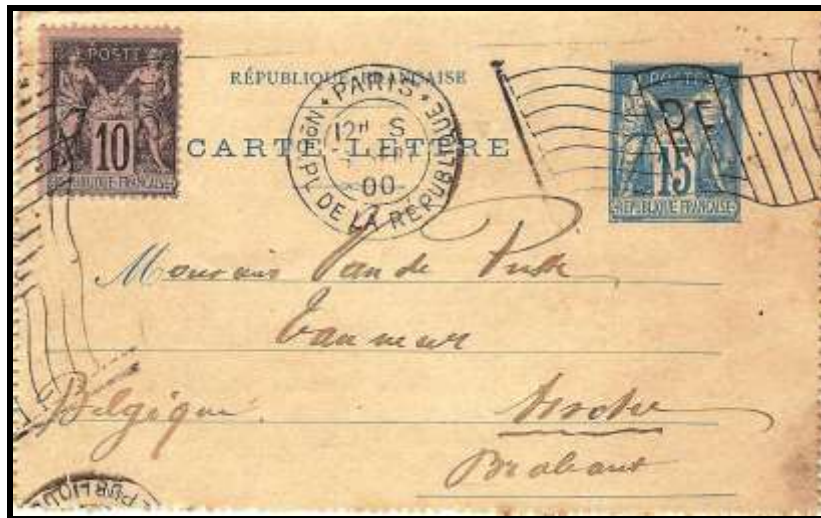 POSTE
10
RÉPUBLIQUE FRANÇAISE
RÉPUBLIQUE FRANÇAISE
CARTE-LETTRE
PARIS
12ᴴ S
00
PL. DE LA RÉPUBLIQUE
POSTE
RF
15
RÉPUBLIQUE FRANÇAISE
Monsieur Van de
Tanneur
Belgique.
Brabant